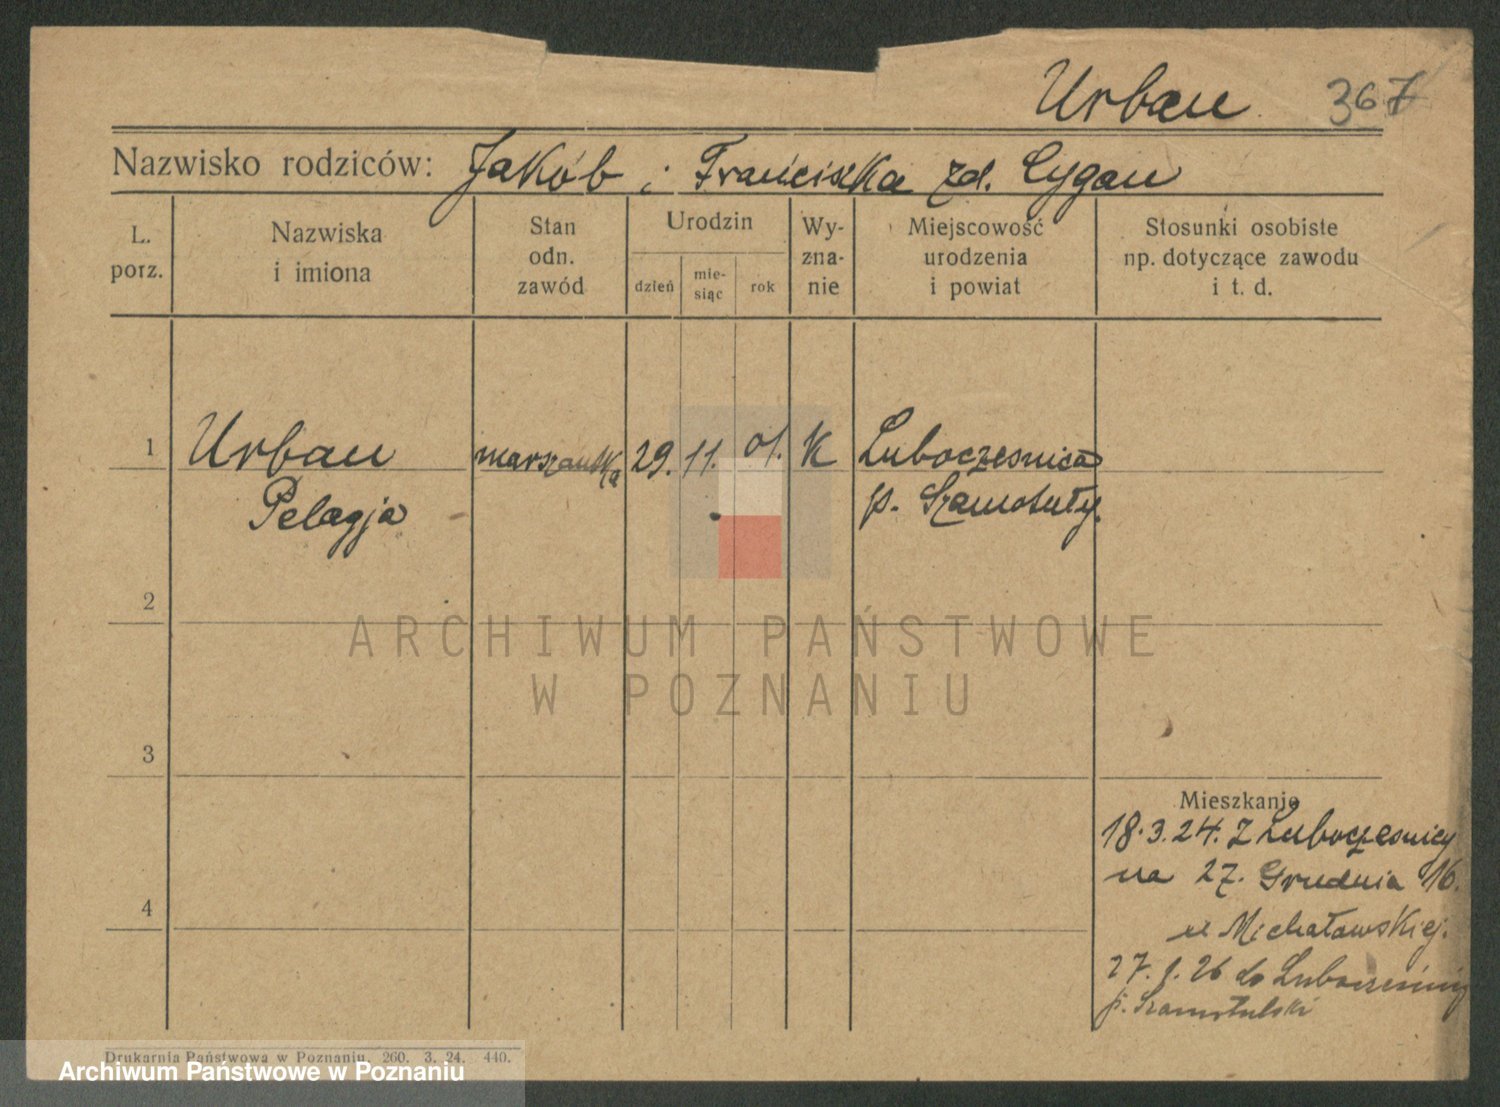 Urban 367
Nazwisko rodziców: Jakób i Franciszka zd. Cygan
L. porz.
Nazwiska i imiona
Stan odn. zawód
Urodzin
dzień
mie-siąc
rok
Wy-zna-nie
Miejscowość urodzenia i powiat
Stosunki osobiste np. dotyczące zawodu i t. d.
1 Urban marszantka 29. 11. 01. K Luboczesnica
Pelagja p. Szamotuły.
2
ARCHIWUM PAŃSTWOWE
W POZNANIU
3
Mieszkanie
18.3.24. Z Luboczesnicy
na 27. Grudnia 16.
4
u Michałowskiej.
27. 1. 26 do
p. Szamotulski
Drukarnia Państwowa w Poznaniu. 260. 3. 24. 440.
Archiwum Państwowe w Poznaniu